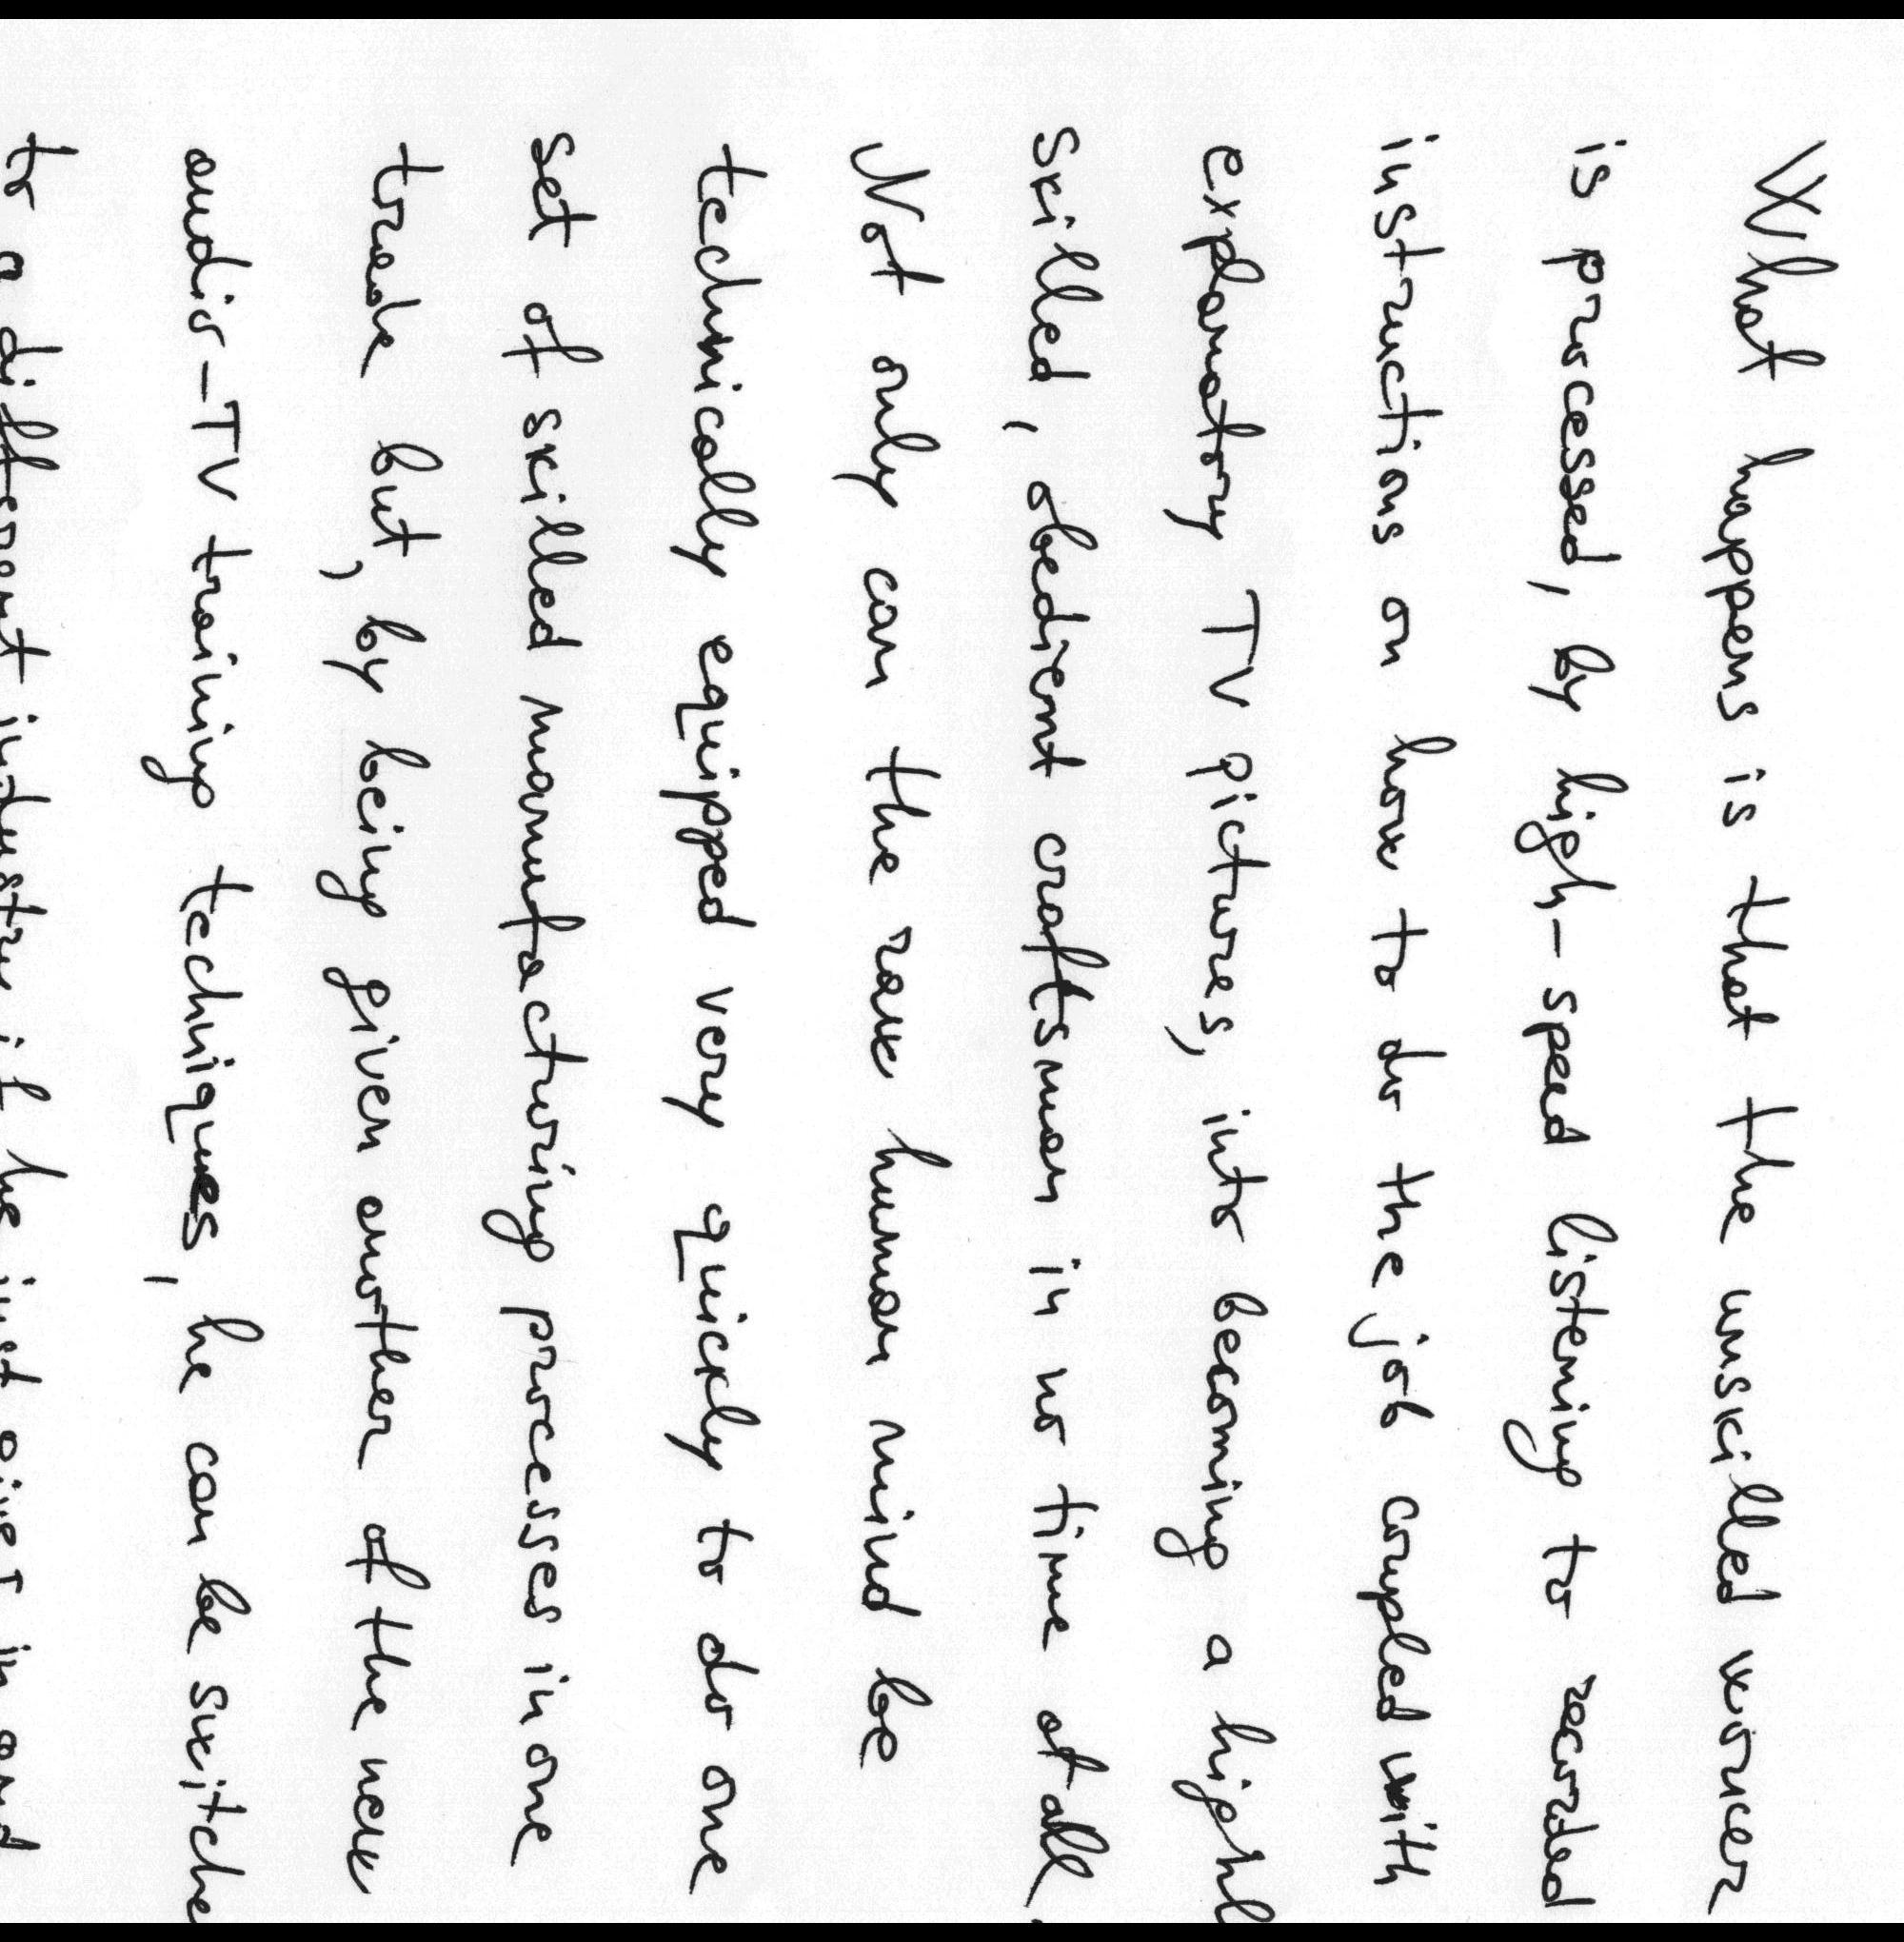 What happens is that the unskilled worker
is processed, by high-speed listening to recorded
instructions on how to do the job coupled with
explanatory TV pictures, into becoming a highl
skilled, obedient craftsman in no time at all.
Not only can the raw human mind be
technically equipped very quickly to do one
set of skilled manufacturing processes in one
trade but, by being given another of the new
audio-TV training techniques, he can be switche
to a different industry if he just give in and